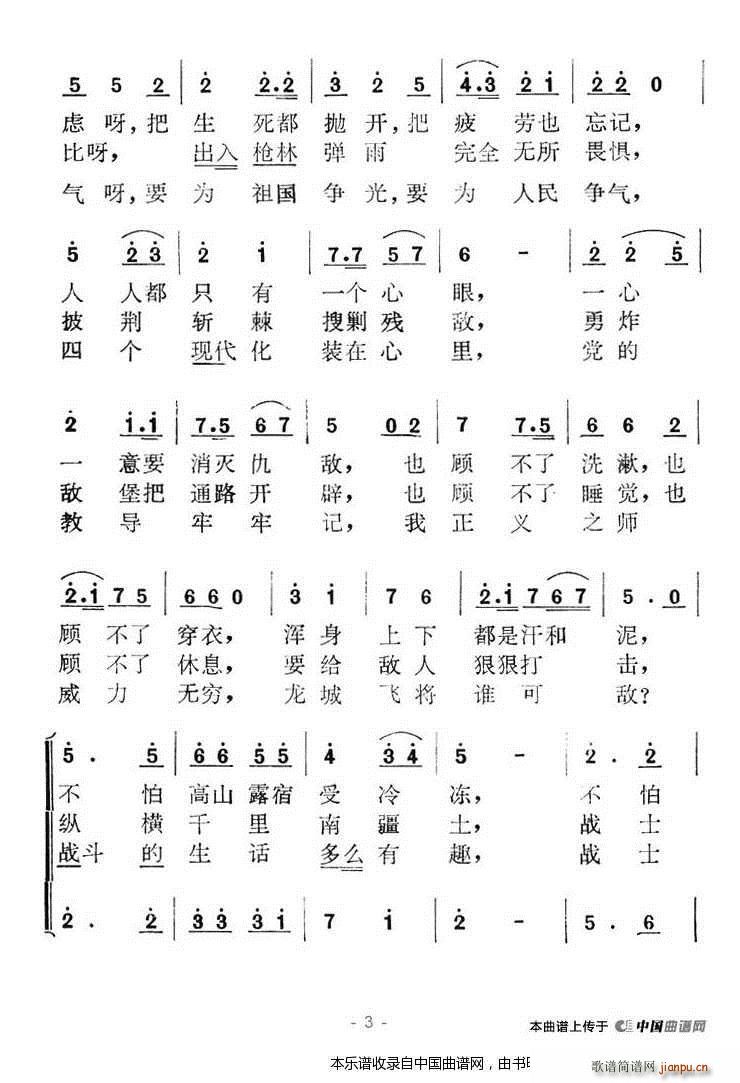 5 5 2 | 2 2.2 | 3 2 5 | 4.3 2 1 | 2 2 0 |
虑呀,把生 死都 抛开,把 疲 劳也 忘记,
比呀, 出入 枪林 弹雨 完全 无所 畏惧,
气呀,要为 祖国 争光,要为 人民 争气,
5 2 3 | 2 1 | 7.7 5 7 | 6 - | 2 2 5 |
人 人都 只 有 一个 心 眼, 一心
披 荆 斩 棘 搜剿 残 敌, 勇炸
四 个 现代化 装在 心 里, 党的
2 1.1 | 7.5 6 7 | 5 0 2 | 7 7.5 | 6 6 2 |
一 意要 消灭 仇 敌, 也 顾 不了 洗漱,也
敌 堡把 通路 开 辟, 也 顾 不了 睡觉,也
教 导 牢 牢 记, 我 正 义 之 师
2.1 7 5 | 6 6 0 | 3 1 | 7 6 | 2.1 7 6 7 | 5 . 0 |
顾 不了 穿衣, 浑 身 上 下 都是汗和 泥,
顾 不了 休息, 要 给 敌 人 狠狠打 击,
威 力 无穷, 龙 城 飞 将 谁 可 敌?
5 . 5 | 6 6 5 5 | 4 3 4 | 5 - | 2 . 2 |
不 怕 高山 露宿 受 冷 冻, 不 怕
纵 横 千 里 南 疆 土, 战 士
战斗 的 生 话 多么 有 趣, 战 士
2 . 2 | 3 3 3 1 | 7 1 | 2 - | 5 . 6 |
- 3 -
本曲谱上传于 中国曲谱网
本乐谱收录自中国曲谱网，由书
歌谱简谱网 jianpu.cn